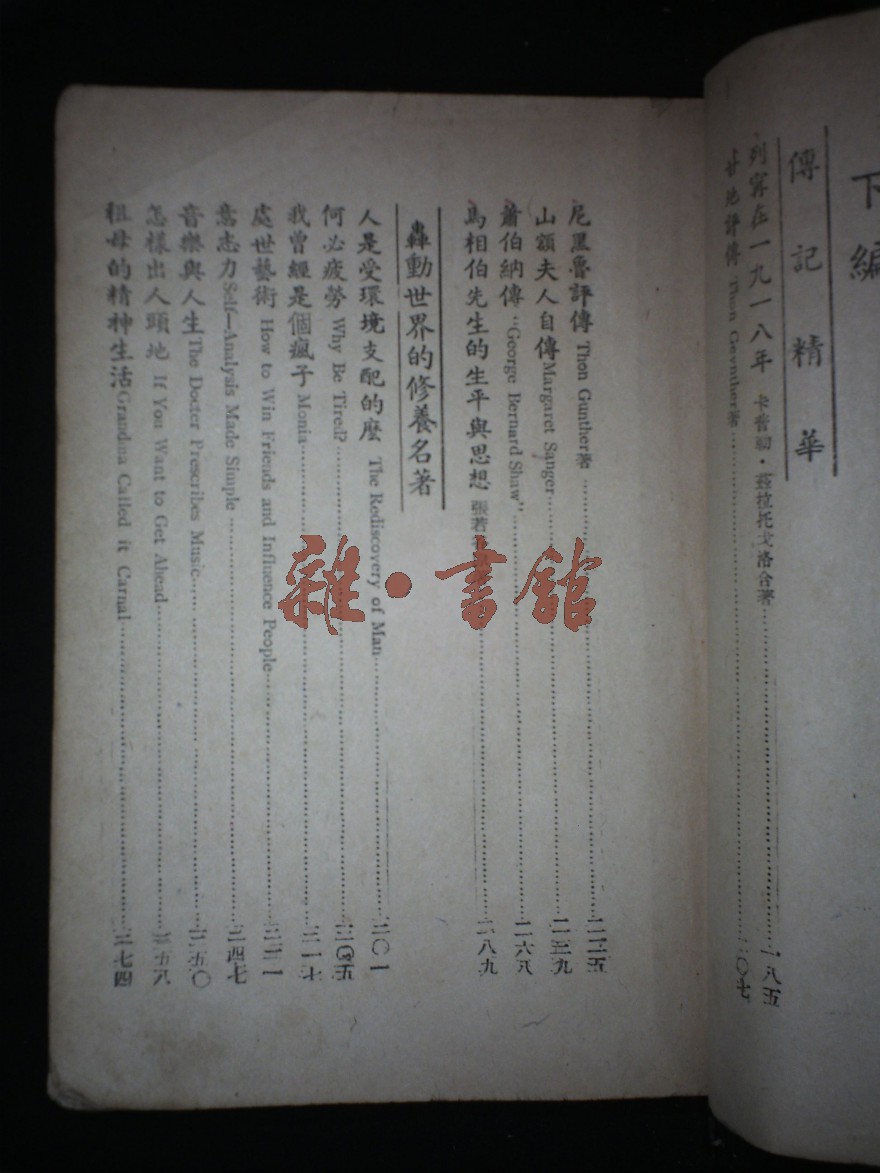 下編
傳記精華
列寧在一九一八年 卡普勒·茲拉托戈洛合著……一八五
甘地評傳 Thon Geynther著……二〇七
尼黑魯評傳 Thon Gunther著……二二五
山額夫人自傳 Margaret Sanger……二三九
蕭伯納傳 "George Bernard Shaw"……二六八
馬相伯先生的生平與思想 張若……二八九
轟動世界的修養名著
人是受環境支配的麽 The Rediscovery of Man……三〇一
何必疲勞 Why Be Tired?……三〇五
我曾經是個瘋子 Monia……三一七
處世藝術 How to Win Friends and Influence People……
意志力 Self—Analysis Made Simple……三四七
音樂與人生 The Docter Prescribes Music……三五〇
怎樣出人頭地 If You Want to Get Ahead……三五八
祖母的精神生活 Grandma Called it Carnal……三七四
雜·書館